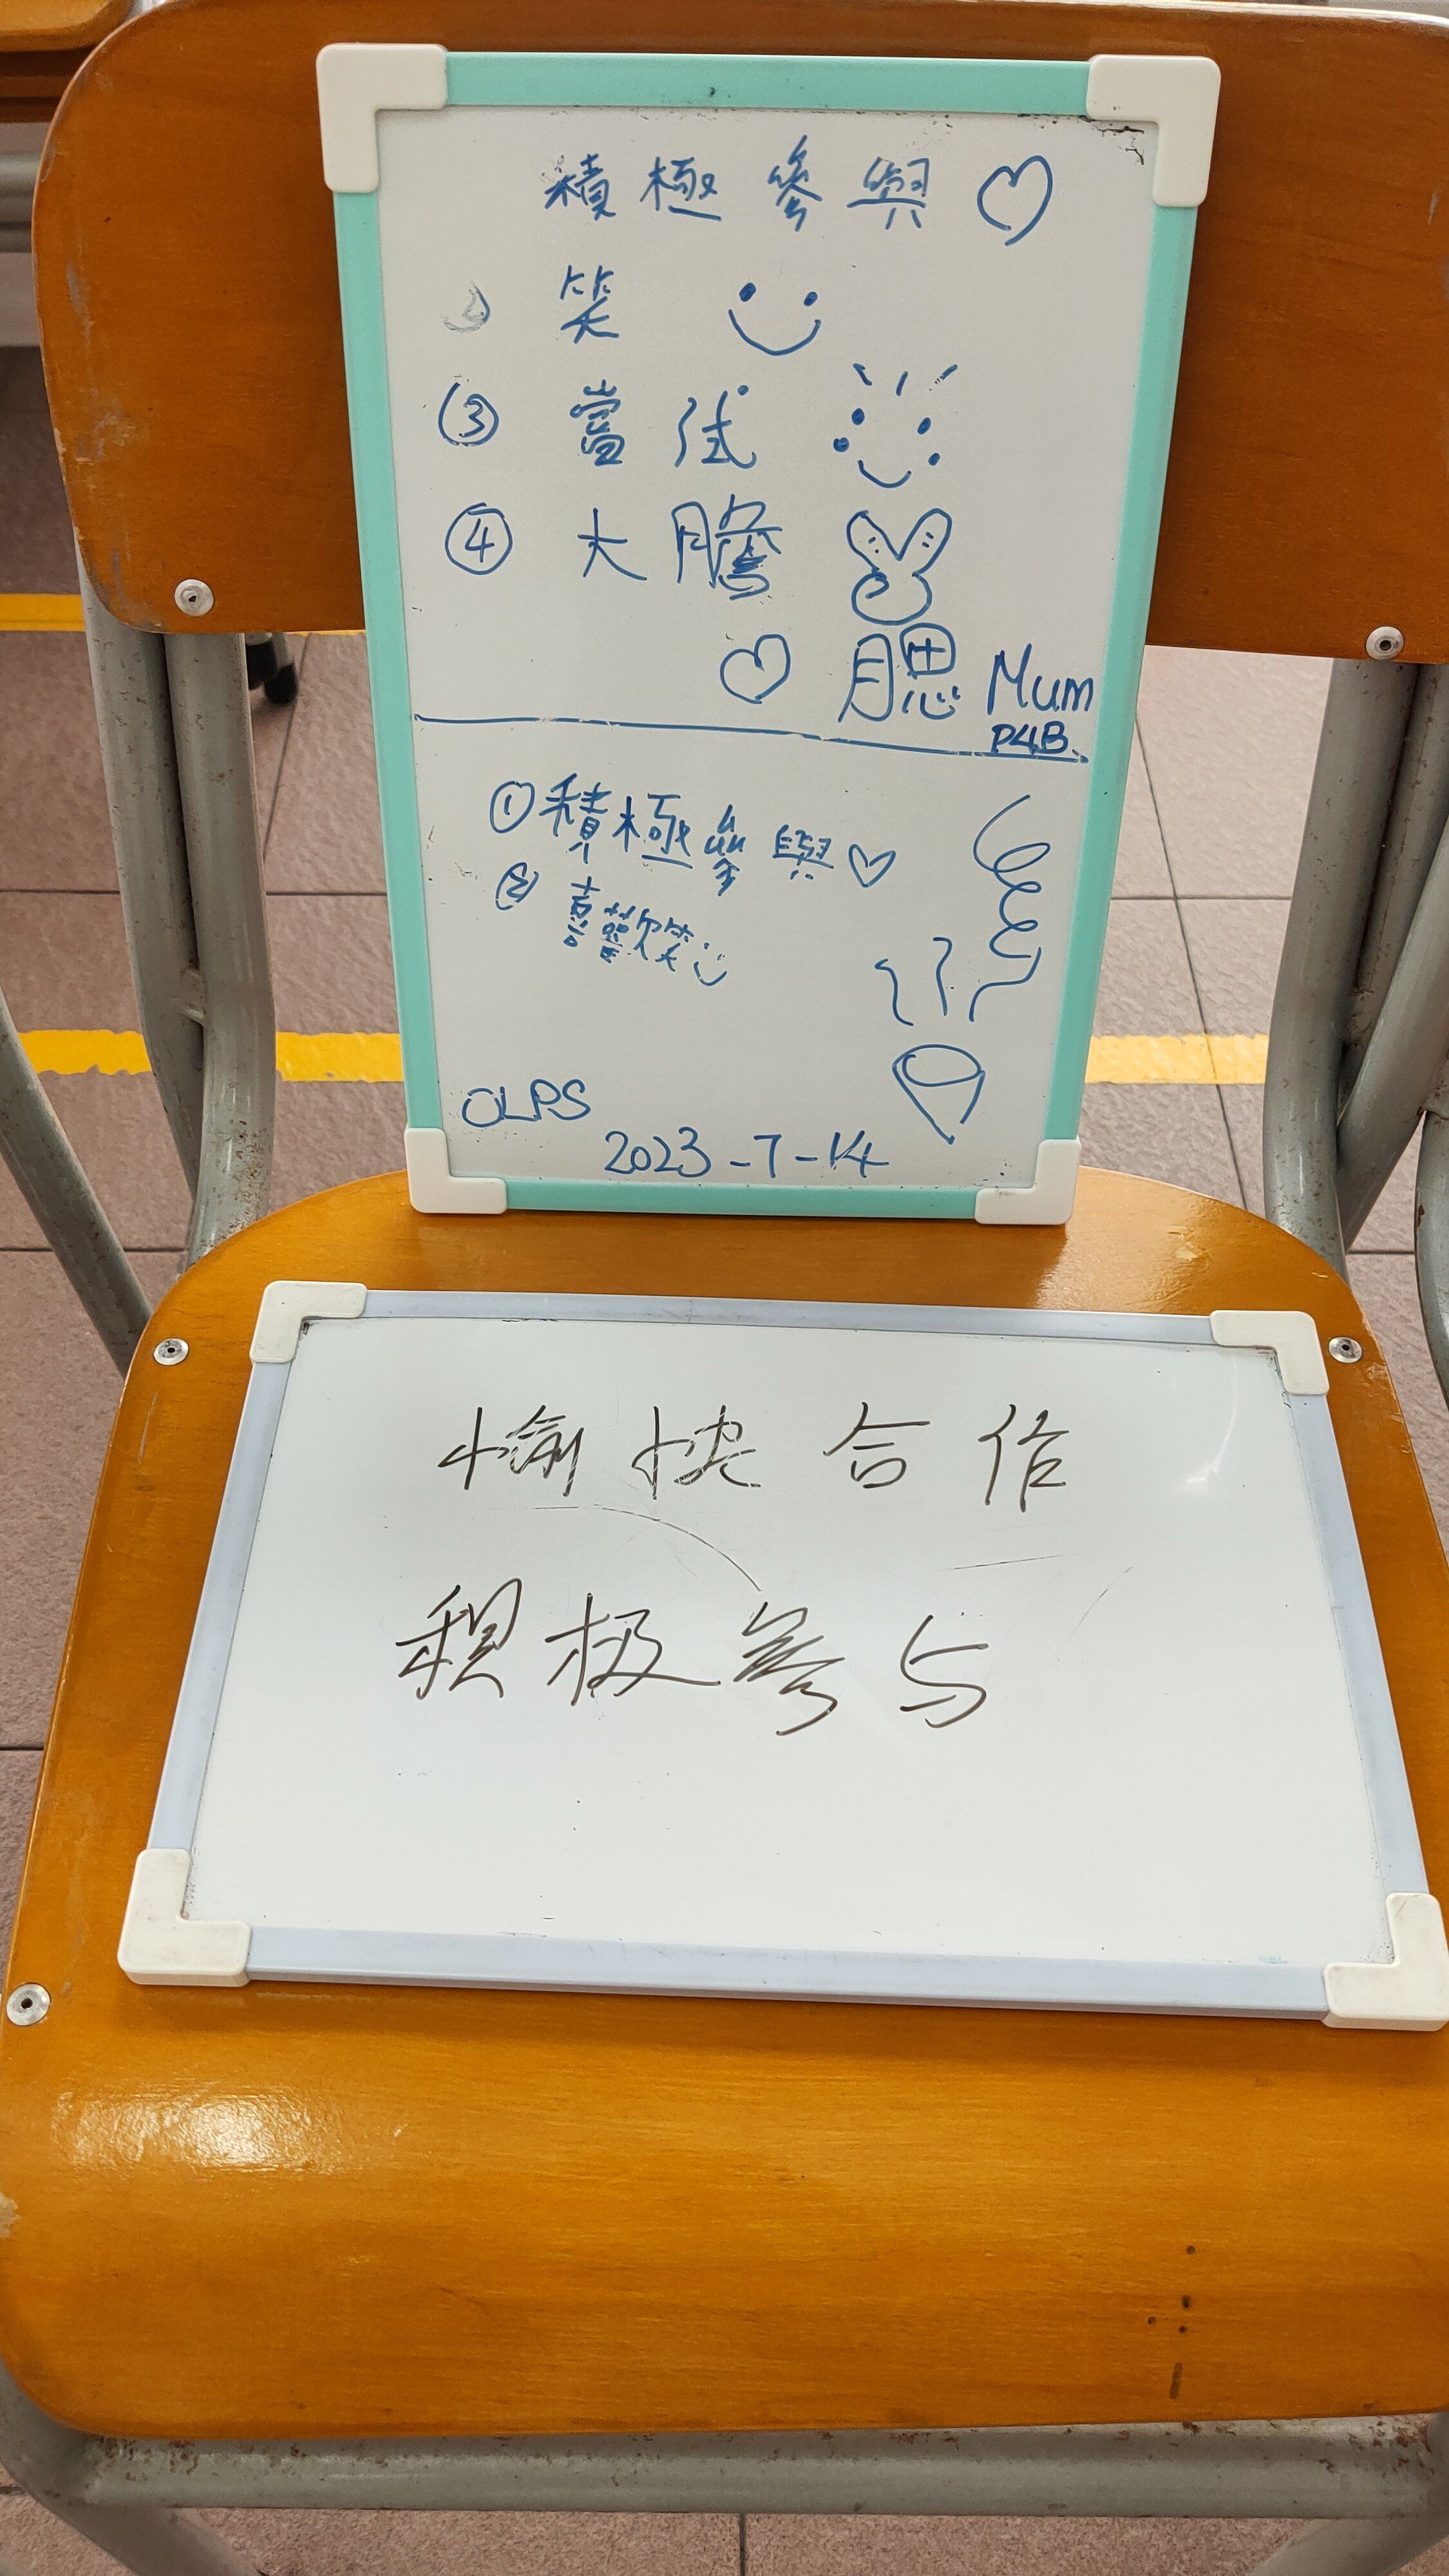 積極參與
笑
③ 當試
④ 大膽
聰 Mum
P4B
① 積極參與
② 喜歡笑
OLPS
2023-7-14
愉快合作
积极参与